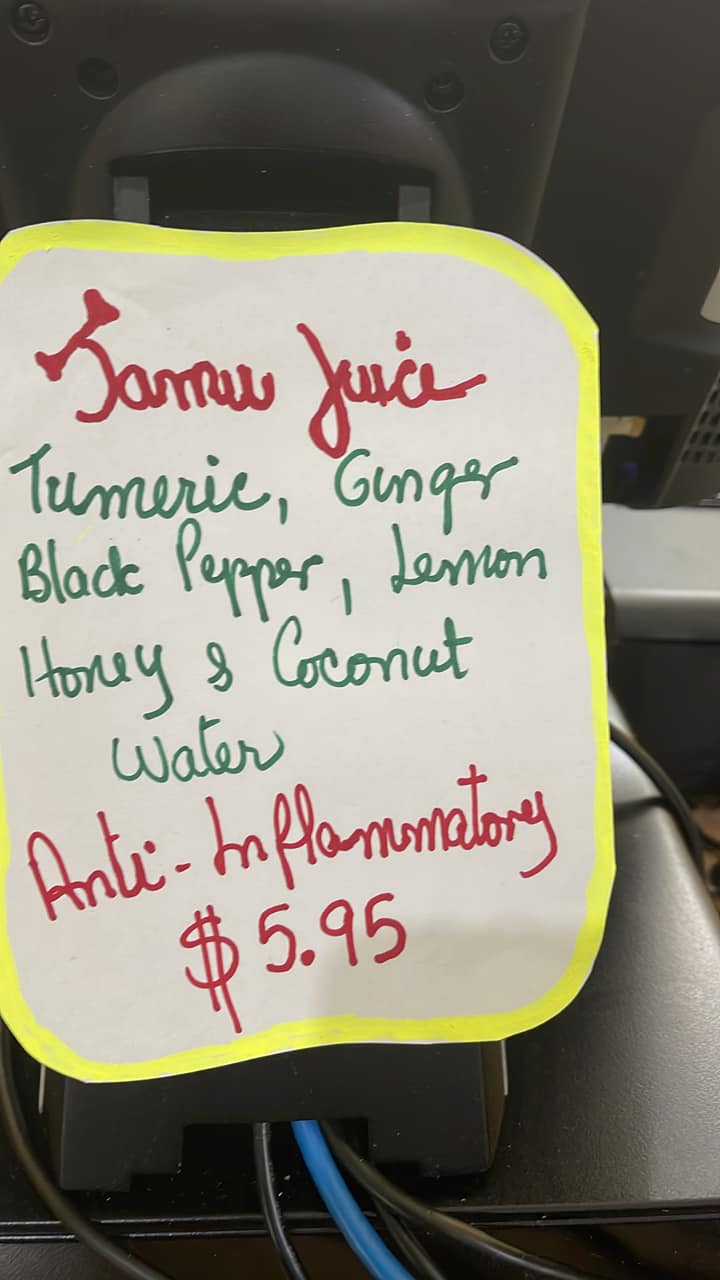 Jamu Juice
Tumeric, Ginger
Black Pepper, Lemon
Honey & Coconut
Water
Anti-Inflammatory
$5.95